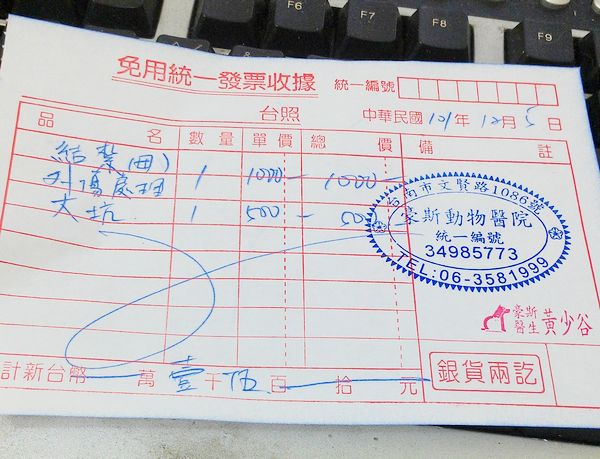 F6
F7
F8
F9
免用統一發票收據 統一編號
台照 中華民國101年12月5日
品名 數量 單價 總價 備註
結紮(母) 1 1000 1000
外傷處理
大坑 1 500 500
台南市文賢路1086號
豪斯動物醫院
統一編號
34985773
TEL:06-3581999
豪斯
醫生 黃少谷
計新台幣 萬壹千伍百 拾 元
銀貨兩訖